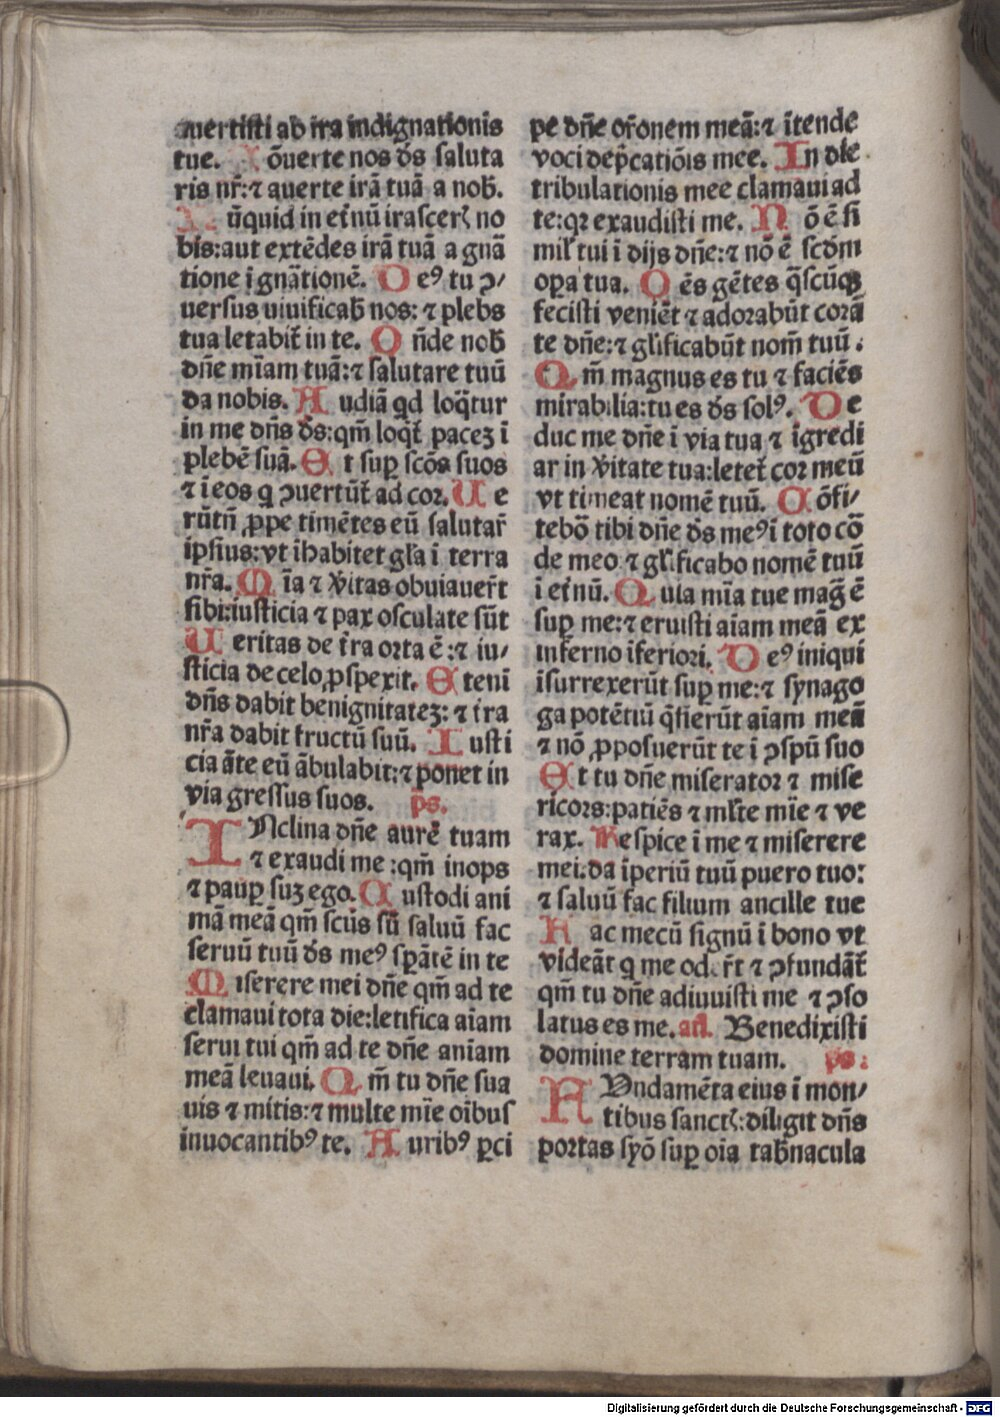 auertisti ab ira indignationis
tue. Cōuerte nos d̄s saluta
ris nr̄:⁊ auerte irā tuā a nob̄.
Nūquid in et̄nū irascerꝭ no
bis:aut extēdes irā tuā a gnā
tione ī gnātionē. Deꝰ tu ↄ/
uersus uiuificab̄ nos: ⁊ plebs
tua letabit̄ in te. Oñde nob̄
dñe mīam tuā:⁊ salutare tuū
da nobis. Audiā qd loq̄tur
in me dñs d̄s:qm̄ loq̄t̄ paceꝫ ī
plebē suā. Et suꝑ scōs suos
⁊ ī eos q ↄuertūt̄ ad cor. Ue
rūtñ ꝓpe timētes eū salutar̄
ipsius:vt īhabitet gl̄a ī terra
nr̄a. Mīa ⁊ v̄itas obuiauer̄t
sibi:iusticia ⁊ pax osculate sūt
Ueritas de t̄ra orta ē:⁊ iu/
sticia de celo ꝓspexit. Etenī
dñs dabit benignitateꝫ: ⁊ t̄ra
nr̄a dabit fructū suū. Iusti
cia āte eū ābulabit:⁊ ponet in
via gressus suos. p̄s.
INclina dñe aurē tuam
⁊ exaudi me:qm̄ inops
⁊ pauꝑ suꝫ ego. Custodi ani
mā meā qm̄ scūs sū saluū fac
seruū tuū d̄s meꝰ sꝑātē in te
Miserere mei dñe qm̄ ad te
clamaui tota die:letifica aīam
serui tui qm̄ ad te dñe aniam
meā leuaui. Qm̄ tu dñe sua
uis ⁊ mitis:⁊ multe mīe oībus
inuocantibꝰ te. Auribꝰ ꝑci
pe dñe or̄onem meā:⁊ ītende
voci dep̄catiōis mee. In die
tribulationis mee clamaui ad
te:qꝛ exaudisti me. Nō ē si
mil̄ tui ī dijs dñe:⁊ nō ē scd̄m
oꝑa tua. Oēs gētes q̄scūqꝫ
fecisti veniēt ⁊ adorabūt corā
te dñe:⁊ gl̄ificabūt nom̄ tuū.
Qm̄ magnus es tu ⁊ faciēs
mirabilia:tu es d̄s solꝰ. De
duc me dñe ī via tua ⁊ īgredi
ar in v̄itate tua:letet̄ cor meū
vt timeat nomē tuū. Cōfi/
tebō tibi dñe d̄s meꝰ ī toto co
de meo ⁊ gl̄ificabo nomē tuū
ī et̄nū. Quia mīa tue maḡ ē
suꝑ me:⁊ eruisti aīam meā ex
inferno īferiori. Deꝰ iniqui
īsurrexerūt suꝑ me:⁊ synago
ga potētiū q̄sierūt aīam meā
⁊ nō ꝓposuerūt te ī ↄspū suo
Et tu dñe miserator ⁊ mise
ricors:patiēs ⁊ ml̄te mīe ⁊ ve
rax. Respice ī me ⁊ miserere
mei:da īperiū tuū puero tuo:
⁊ saluū fac filium ancille tue
Fac mecū signū ī bono vt
videāt q me oder̄t ⁊ ↄfundāt̄
qm̄ tu dñe adiuuisti me ⁊ ↄso
latus es me. añ. Benedixisti
domine terram tuam. ps:
FUndamēta eius ī mon/
tibus sanctꝭ:diligit dñs
portas syō suꝑ oīa tab̄nacula
Digitalisierung gefördert durch die Deutsche Forschungsgemeinschaft - DFG